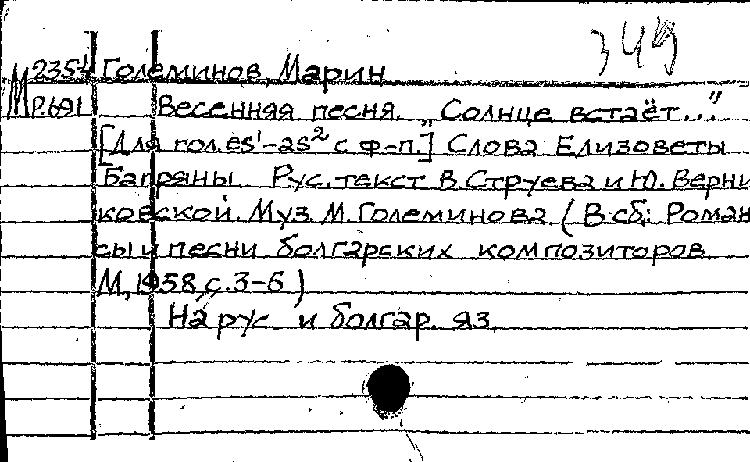 349
М 2354 Големинов, Марин
Р.691 Весенняя песня. „Солнце встаёт..."
[Для гол. es¹-as² с ф-п.] Слова Елизоветы
Багряны. Рус. текст В. Струева и Ю. Верни
ковской. Муз. М. Големинова (В сб: Роман
сы и песни болгарских композиторов
М, 1958, с. 3-6)
На рус. и болгар. яз.